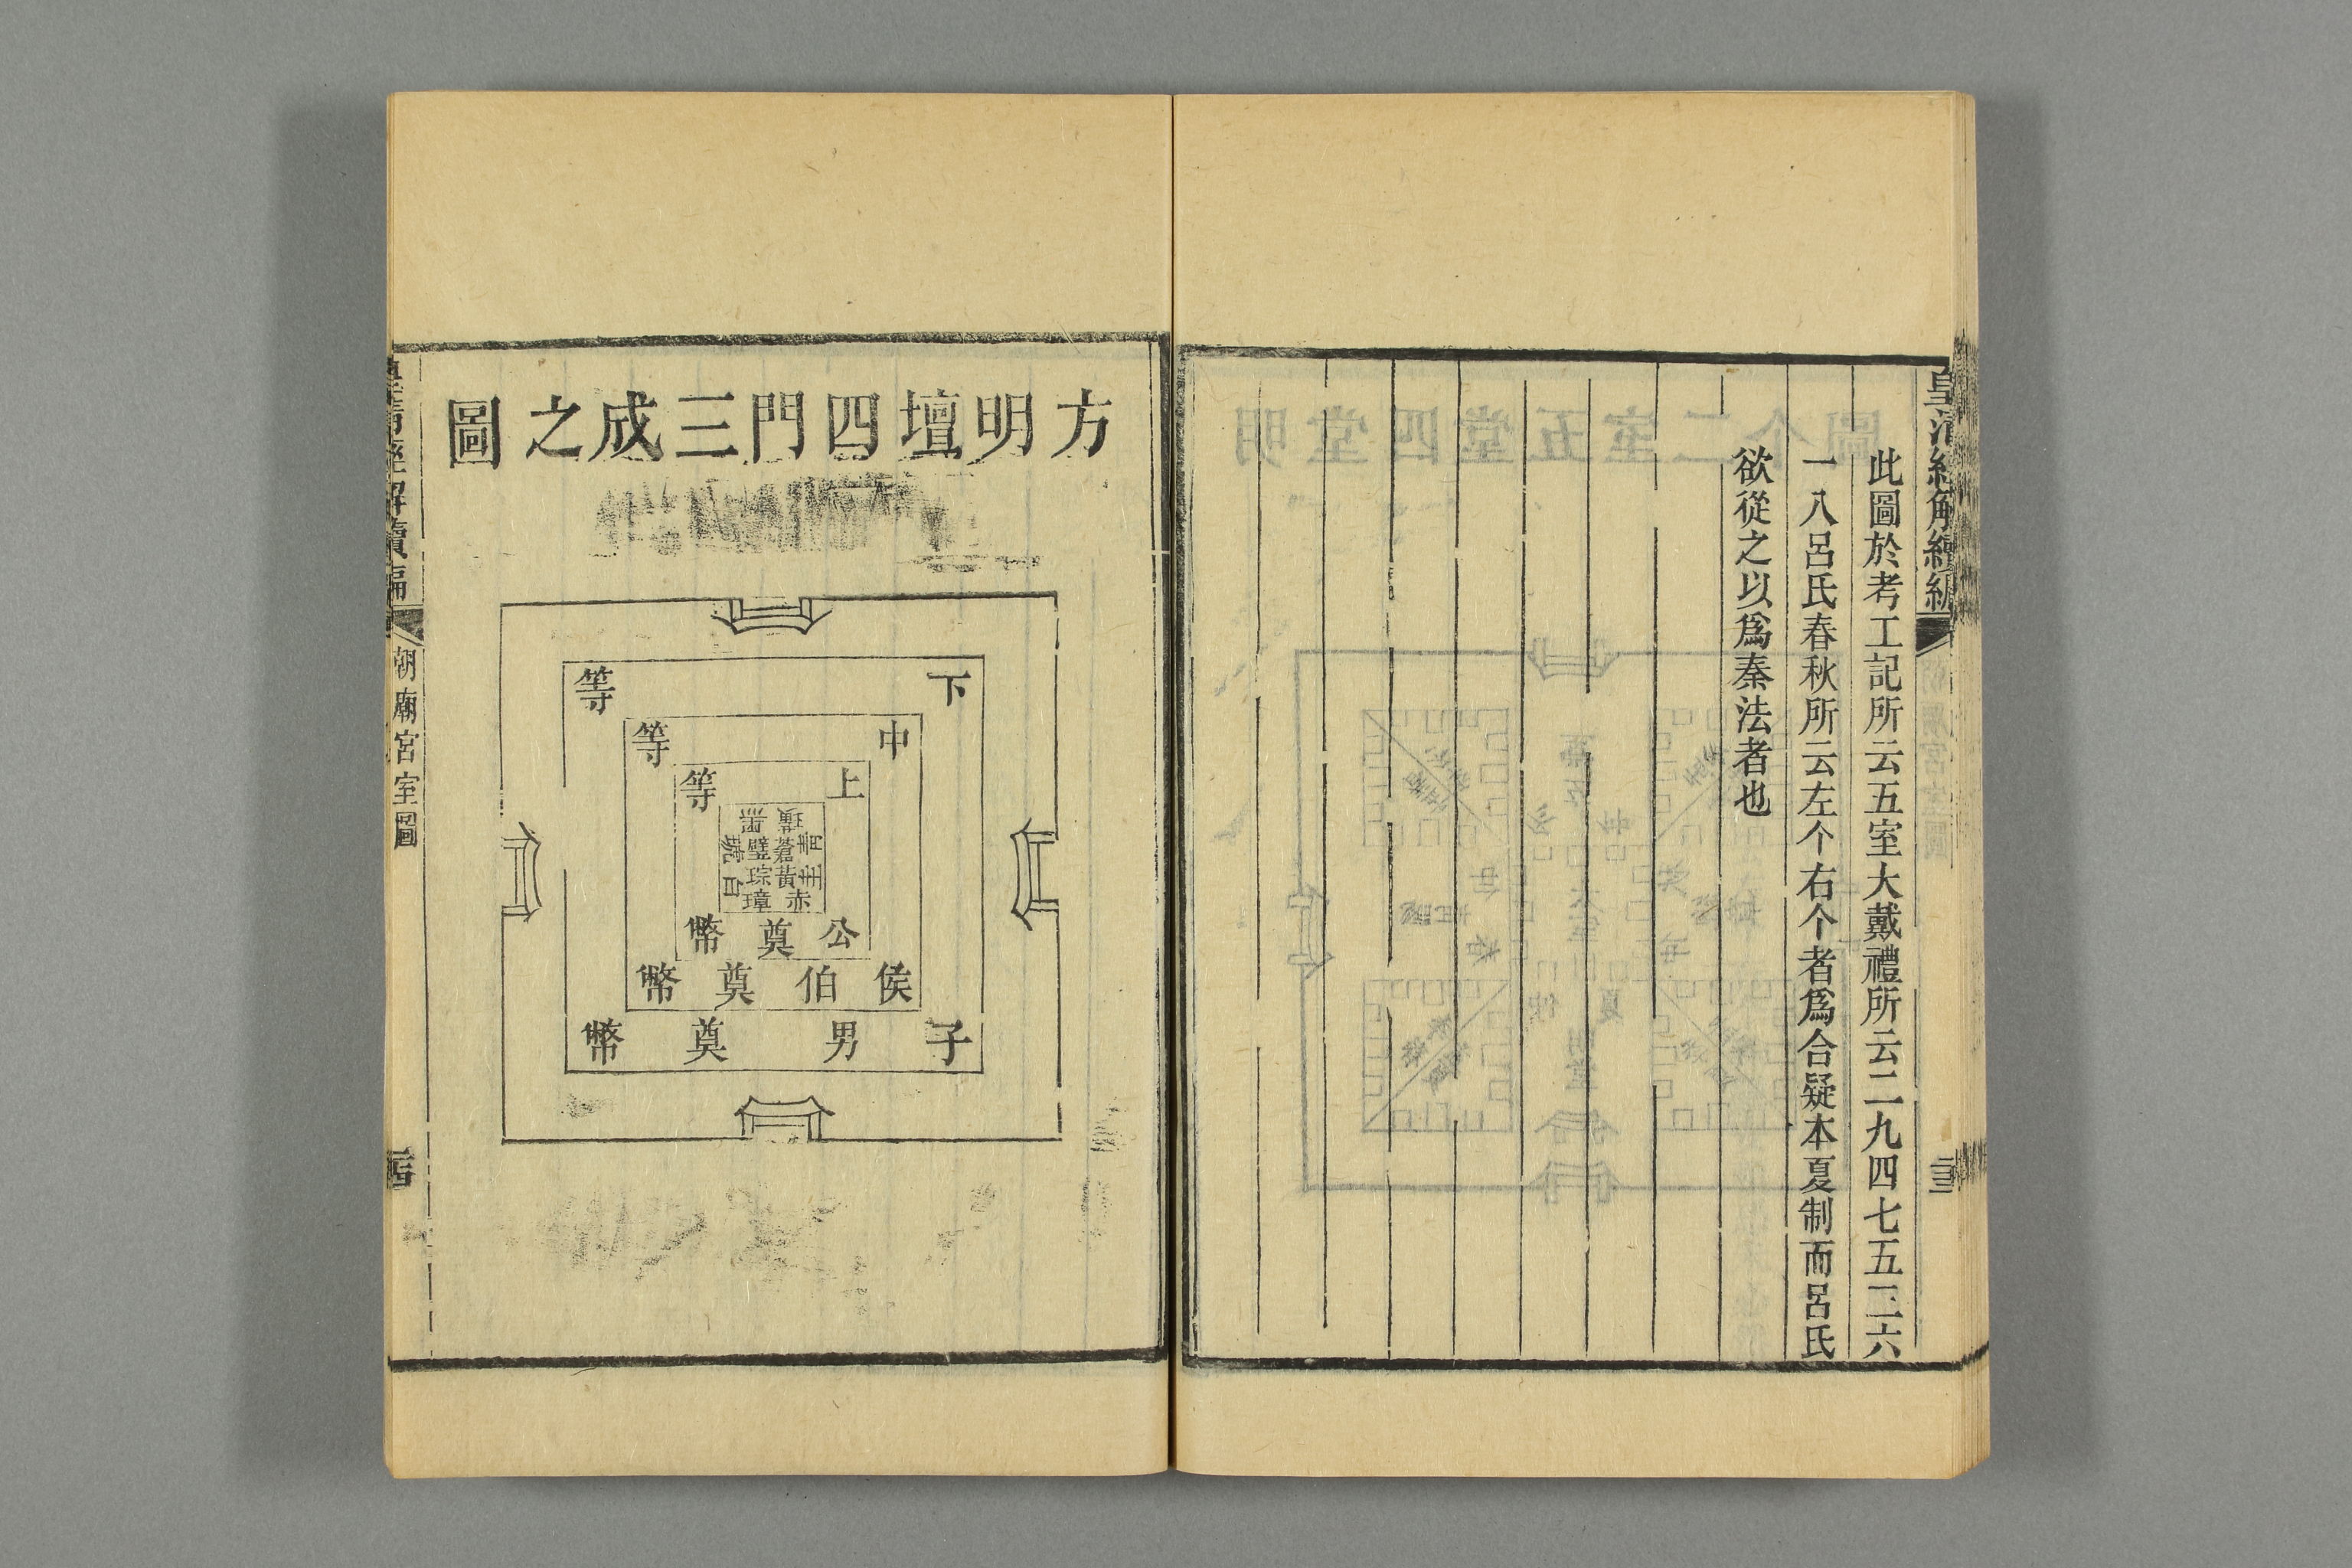 皇清經解續編
此圖於考工記所云五室大戴禮所云二九四七五三六
一八呂氏春秋所云左个右个者爲合疑本夏制而呂氏
欲從之以爲秦法者也
方明壇四門三成之圖
下等
中等
上等
黑璜
青圭
蒼璧
黃琮
白琥
赤璋
公奠幣
侯伯奠幣
子男奠幣
皇清經解續編
朝廟宮室圖